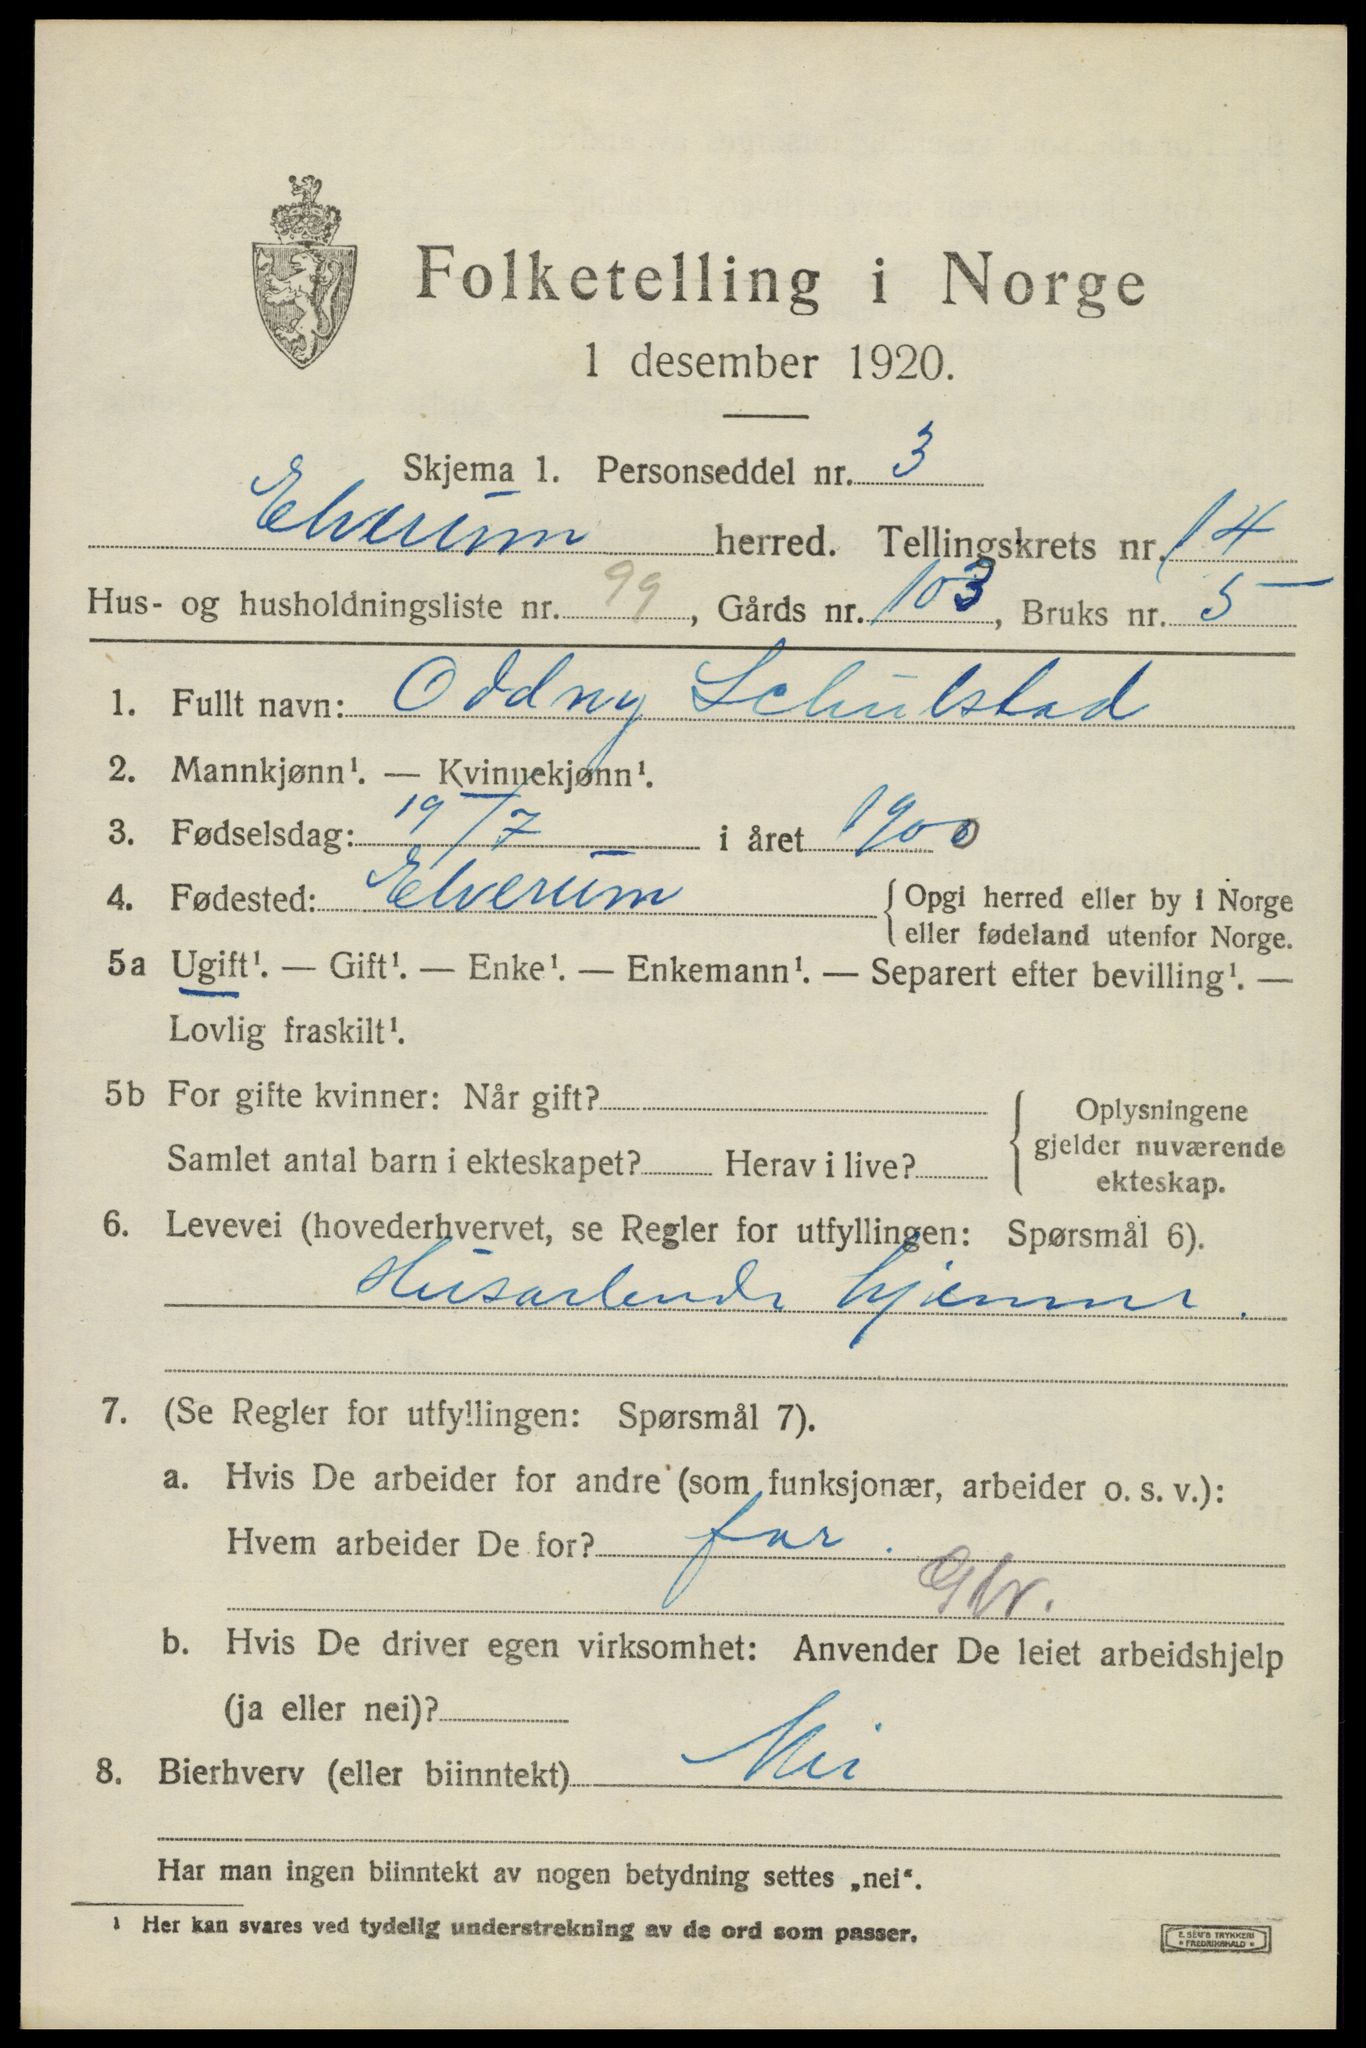 Folketelling i Norge
1 desember 1920.
Skjema 1. Personseddel nr. 3
Elverum herred. Tellingskrets nr. 14
Hus- og husholdningsliste nr. 99, Gårds nr. 103, Bruks nr. 5
1. Fullt navn: Oddny Schulstad
2. Mannkjønn¹. — Kvinnekjønn¹.
3. Fødselsdag: 19/7 i året 1900
4. Fødested: Elverum
{ Opgi herred eller by i Norge
eller fødeland utenfor Norge.
5a Ugift¹. — Gift¹. — Enke¹. — Enkemann¹. — Separert efter bevilling¹. —
Lovlig fraskilt¹.
5b For gifte kvinner: Når gift?
Samlet antal barn i ekteskapet? Herav i live?
{ Oplysningene
gjelder nuværende
ekteskap.
6. Levevei (hovederhvervet, se Regler for utfyllingen: Spørsmål 6).
Husarbeide hjemme.
7. (Se Regler for utfyllingen: Spørsmål 7).
a. Hvis De arbeider for andre (som funksjonær, arbeider o. s. v.):
Hvem arbeider De for? far.
Gbr.
b. Hvis De driver egen virksomhet: Anvender De leiet arbeidshjelp
(ja eller nei)?
8. Bierhverv (eller biinntekt) Nei
Har man ingen biinntekt av nogen betydning settes „nei“.
¹ Her kan svares ved tydelig understrekning av de ord som passer.
E. SEM'S TRYKKERI
* FREDRIKSHALD *